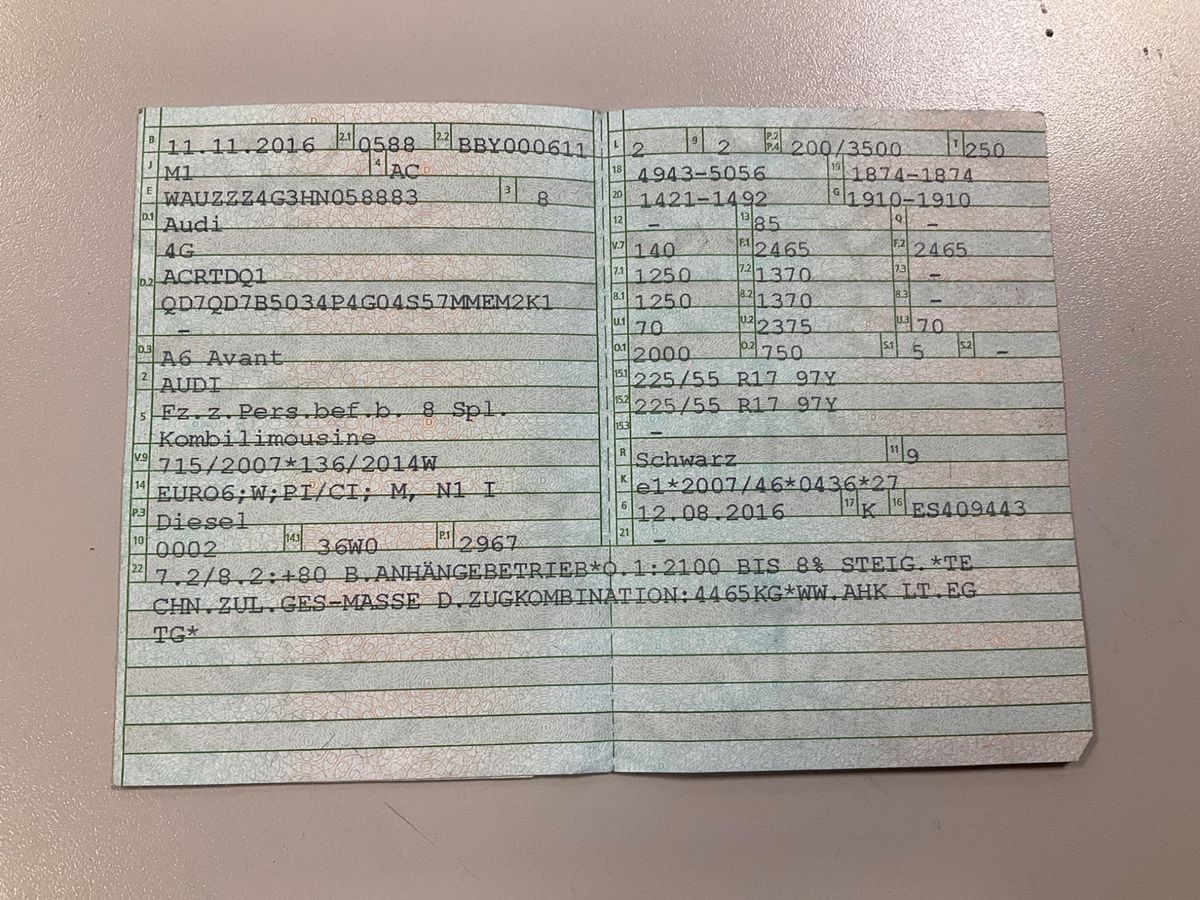 B 11.11.2016 2.1 0588 2.2 BBY000611
J M1 4 AC
E WAUZZZ4G3HN058883 3 8
D.1 Audi
4G
D.2 ACRTDQ1
QD7QD7B5034P4G04S57MMEM2K1
–
D.3 A6 Avant
2 AUDI
5 Fz.z.Pers.bef.b. 8 Spl.
Kombilimousine
V.9 715/2007*136/2014W
14 EURO6;W;PI/CI; M, N1 I
P.3 Diesel
10 0002 14.1 36W0 P.1 2967
L 2 9 2 P.2 P.4 200/3500 T 250
18 4943-5056 19 1874-1874
20 1421-1492 G 1910-1910
12 – 13 85 Q –
V.7 140 F.1 2465 F.2 2465
7.1 1250 7.2 1370 7.3 –
8.1 1250 8.2 1370 8.3 –
U.1 70 U.2 2375 U.3 70
O.1 2000 O.2 750 S.1 5 S.2 –
15.1 225/55 R17 97Y
15.2 225/55 R17 97Y
15.3 –
R Schwarz 11 9
K e1*2007/46*0436*27
6 12.08.2016 17 K 16 ES409443
21 –
22 7.2/8.2:+80 B.ANHÄNGEBETRIEB*O.1:2100 BIS 8% STEIG.*TE
CHN.ZUL.GES-MASSE D.ZUGKOMBINATION:4465KG*WW.AHK LT.EG
TG*